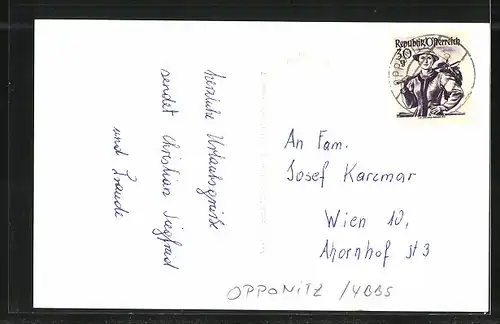 herzliche Urlaubsgrüße
sendet Christian Siegfried
und Traude
Republik Österreich
30
g
OPPO
An Fam.
Josef Karcmar
Wien 10,
Ahornhof St 3
OPPONITZ /YBBS